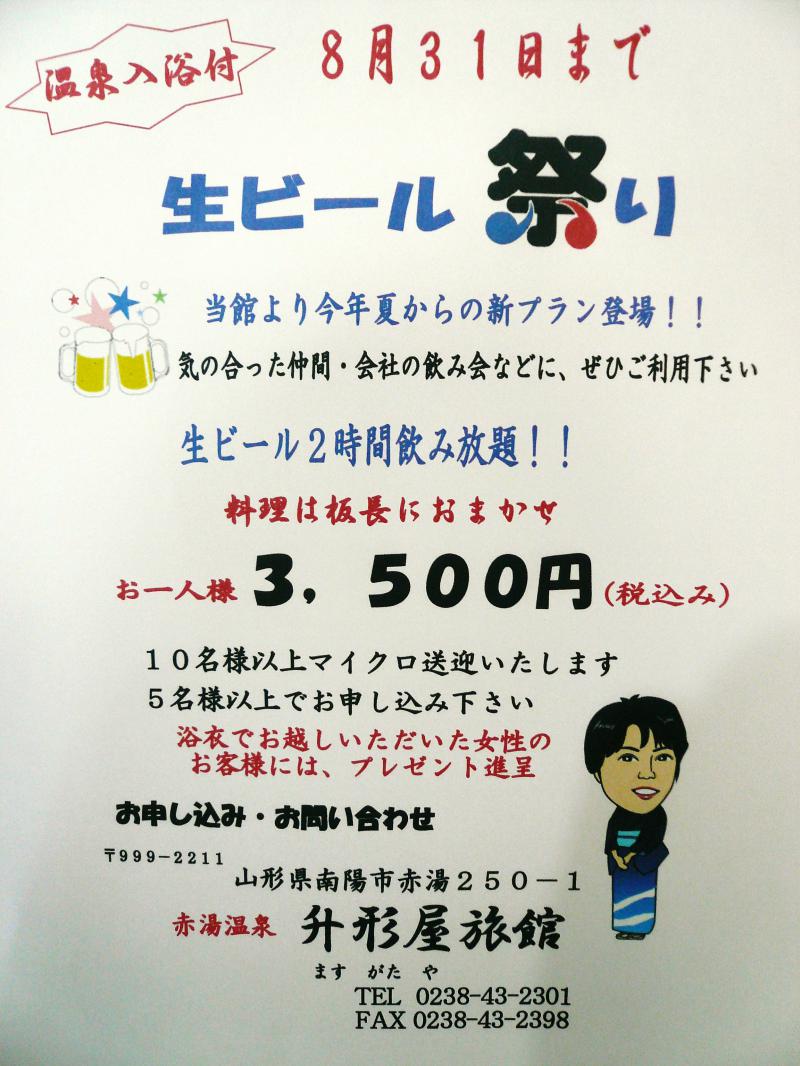 温泉入浴付
８月３１日まで
生ビール祭り
当館より今年夏からの新プラン登場！！
気の合った仲間・会社の飲み会などに、ぜひご利用下さい
生ビール２時間飲み放題！！
料理は板長におまかせ
お一人様 ３，５００円（税込み）
１０名様以上マイクロ送迎いたします
５名様以上でお申し込み下さい
浴衣でお越しいただいた女性の
お客様には、プレゼント進呈
お申し込み・お問い合わせ
〒999-2211
山形県南陽市赤湯２５０－１
赤湯温泉 升形屋旅館
ます がた や
TEL 0238-43-2301
FAX 0238-43-2398